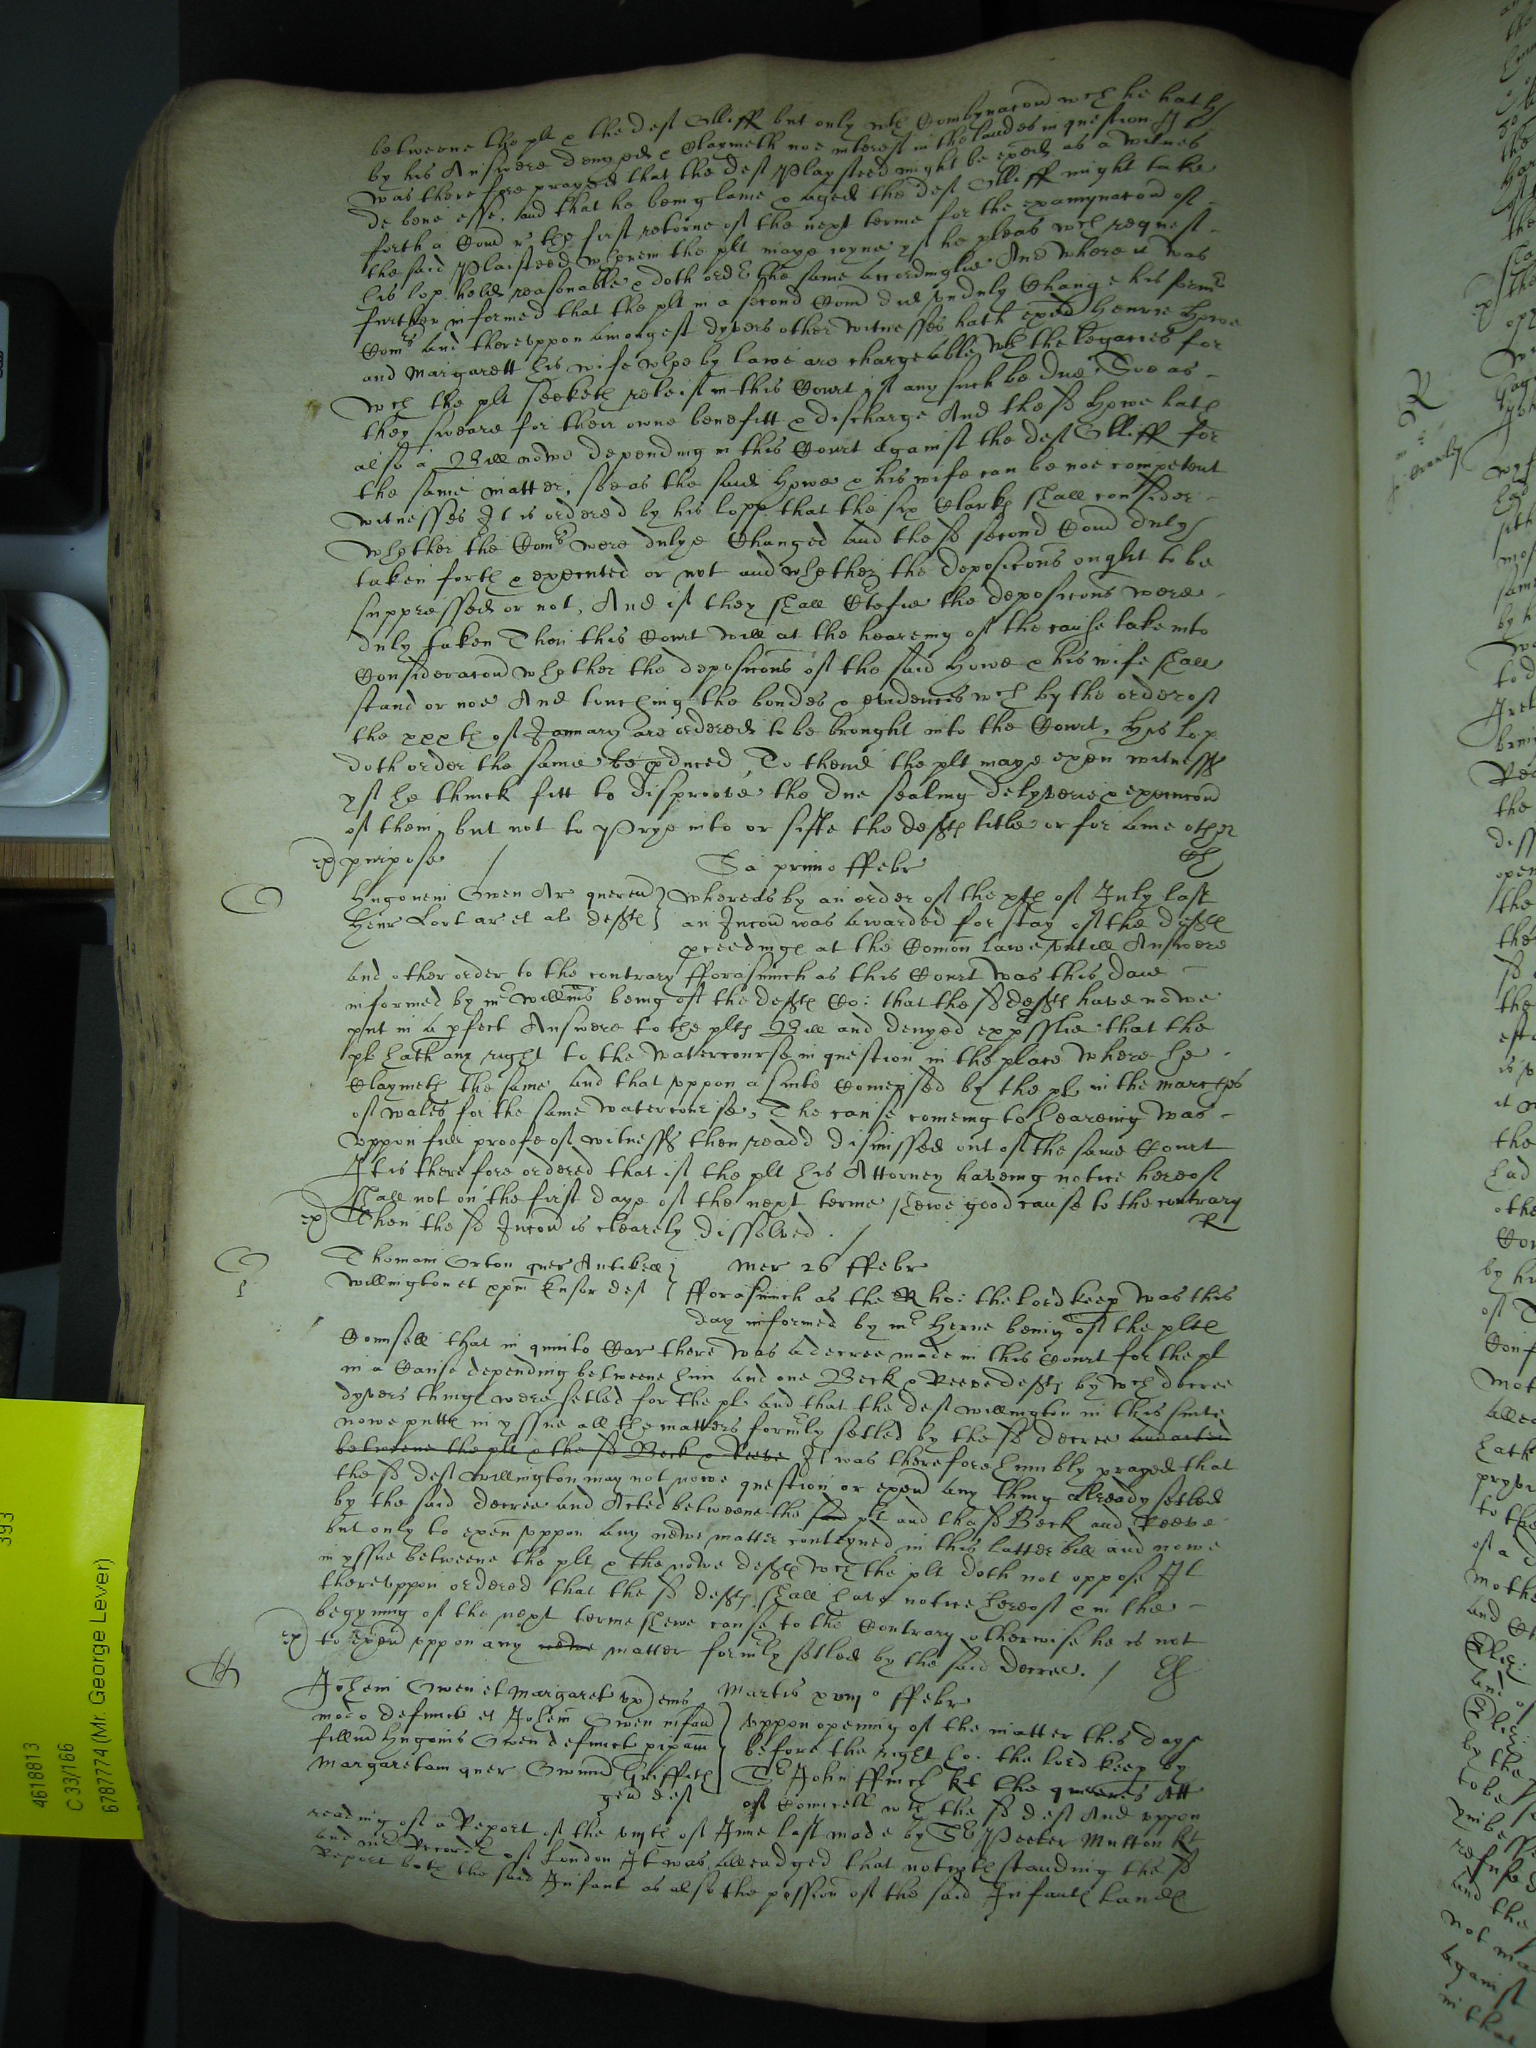 betweene the plt & the deft Olliff but only wth Combynacon wch he hath
by his Answere denyed & Claymeth noe interest in the landes in question It
was therefore prayed that the deft Playsteed might be exed as a witnes
de bene esse, and that he being lame & aged the deft Olliff might take
forth a Comd r' the first retorne of the next terme for the examynacon of
the said Plaisteed wherein the plt maye ioyne yf he please wch request
his lop. holds reasonable & doth order the same accordinglie And where it was
further informed that the plt in a second Comd did unduly Change his formr
Comrs And thereuppon amongest dyvers other witnesses hath exed Henrie Howe
and Margarett his wife whoe by lawe are chargeable wth the legacies for
wch the plt seeketh releif in this Court if any such be due Soe as
they sweare for their owne benefitt & discharge And the sd Howe hath
also a Bill nowe depending in this Court against the deft Olliff for
the same matter, soe as the said Howe & his wife can be noe competent
witnesses It is ordered by his lopp. that the six Clarks shall consider
whether the Comrs were dulye Changed and the sd second Comd duly
taken forth & executed or not and whether the deposicons ought to be
suppressed or not, And if they shall Certefie the deposicons were
duly taken Then this Court will at the heareing of the cause take into
Consideracon whether the deposicons of the said Howe & his wife shall
stand or noe And touching the bondes & evidences wch by the order of
the xxxth of January are ordered to be brought into the Court, His lop
doth order the same to be pduced, To thend the plt maye exen witnesses
yf he thinck fitt to disproove the due sealing delyverie & execucon
of them, but not to Prye into or sifte the defts title or for anie other
ex purpose / Sa primo ffebr
Hugonem Owen Ar quereñ } Whereas by an order of the xth of July last
Henr Lort ar et al defts } an Iniucon was awarded for stay of the defts
pceedings at the Comon lawe untill Answere
and other order to the contrary fforasmuch as this Court was this daie
informed by mr Willms being of the defts Co: that the sd defts have nowe
put in a pfect Answere to the plts Bill and denyed expsslie that the
plt hath any right to the watercourse in question in the place where he
Claymeth the same and that uppon a suite Comensed by the plt in the marches
of wales for the same watercourse, The cause coming to heareing was
uppon full proofe of witnesses then readd dismissed out of the same Court
It is therefore ordered that if the plt his Attorney haveing notice hereof
shall not on the first daye of the next terme shewe good cause to the contrary
ex Then the sd Iniucon is clearely dissolved. / R
Thomam Orton quer Antikell } Mer 26 ffebr
Willington et xpm Ensor def } fforasmuch as the R ho: the lord keep was this
day informed by mr Herne being of the plts
Counsell that in quinto Car there was a decree made in this Court for the plt
in a Cause depending betweene him and one Beck & Reeve defts by wch decree
dyvers things were setled for the plt and that the deft Willington in this suite
nowe putts in yssue all the matters formrly setled by the sd decree and acted
betweene the plt & the sd Beck & Reeve It was therefore humbly prayed that
the sd deft Willington may not nowe question or exen any thing already setled
by the said decree and Acted betweene the said plt and the sd Beck and Reeve
but only to exen uppon any newe matter conteyned in this latter bill and nowe
in yssue betweene the plt & the nowe defts wch the plt doth not oppose It
thereuppon ordered that the sd defts shall have notice hereof & in the
begyning of the next terme shewe cause to the Contrary otherwise he is not
ex to exen uppon any newe matter formrly setled by the said decree. /
Johem Owen et Margaret ux eius } Martis xviijo ffebr
modo defunct et Johem Owen infañ } Uppon opening of the matter this daye
filium Hugonis Owen defunct p before the right ho: the lord keep by
Margaretam quer Owinum Griffith } Sr John ffinch kt the quenes Att
gen def of Councell wth the sd deft And uppon
reading of a Report of the viijth of June last made by Sr Peeter Mutton kt
and mr Recorder of London It was alleadged that notwthstanding the sd
Report both the said Infant as also the possion of the said Infants lands
4618813
C 33/166
6787774 (Mr. George Lever)
393